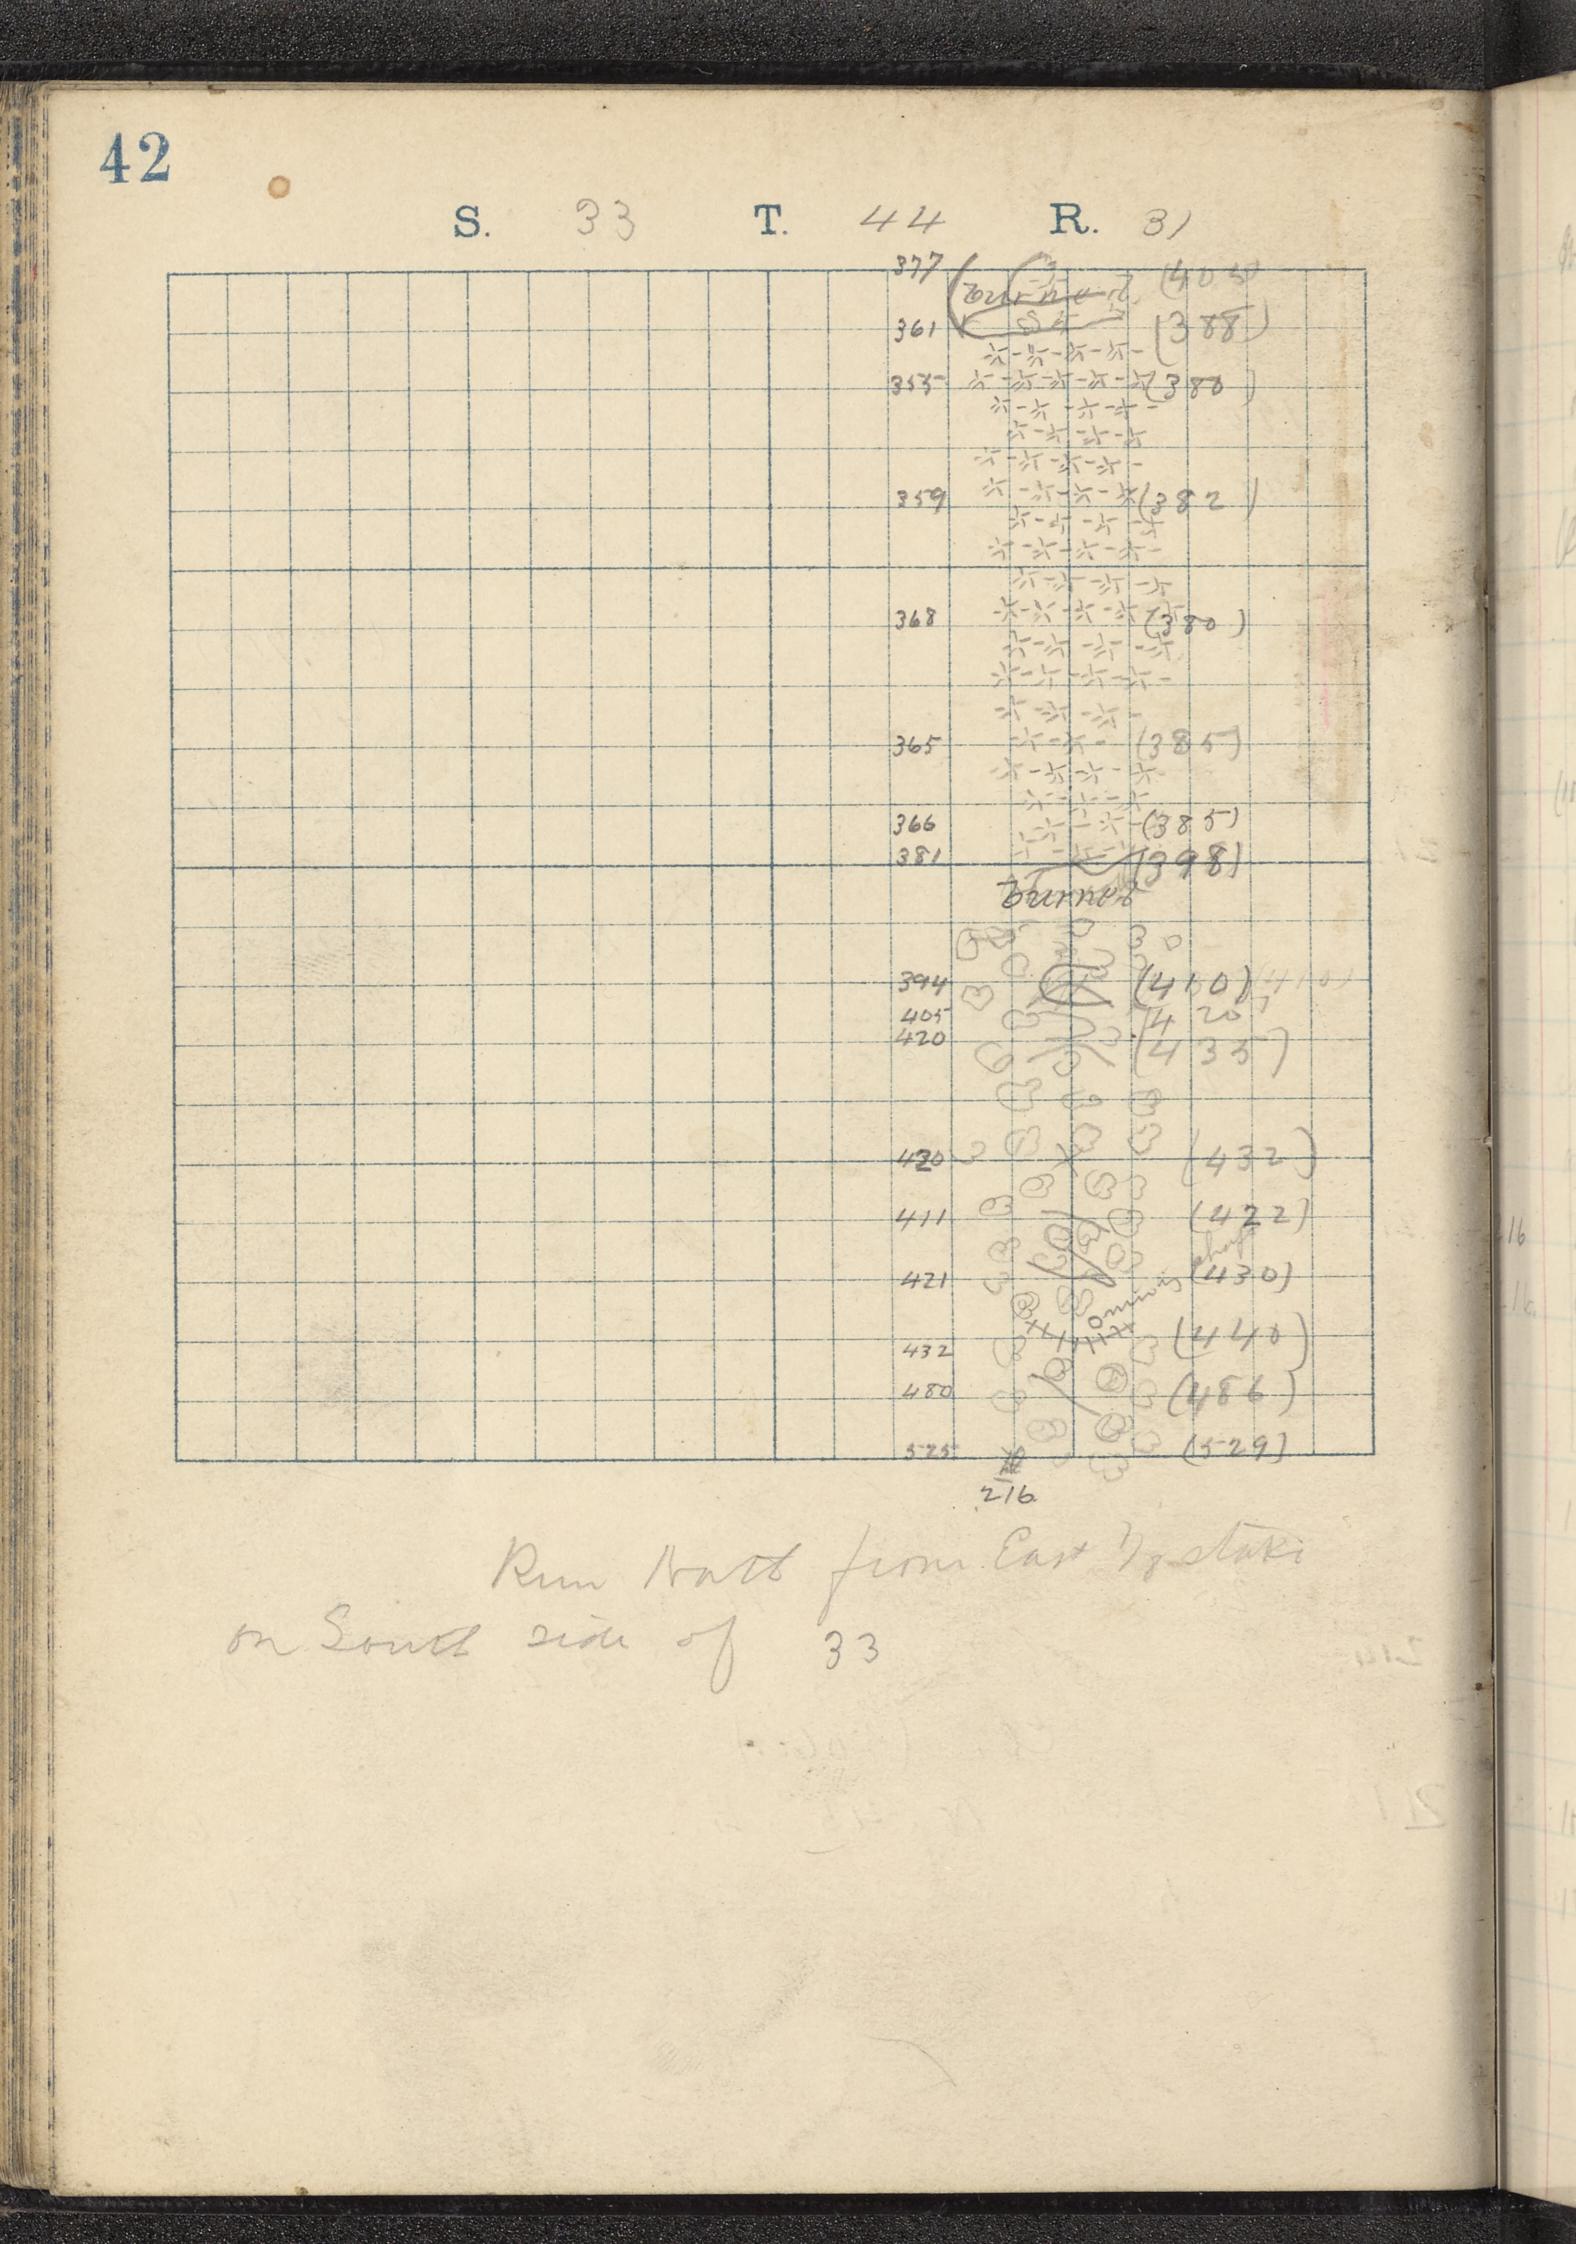 42
S. 33 T. 44 R. 31
377 (405)
burned
361 (388)
355 (380)
359 (382)
368 (380)
365 (385)
366 (385)
381 (398)
burned
394 (410) (410)
405 (420)
420 (435)
420 (432)
411 (422)
421 (430)
432 (440)
480 (486)
525 (529)
216
Run North from East 1/8 stake
on South side of 33